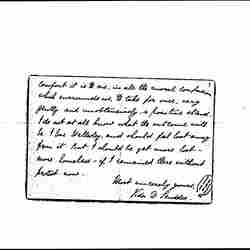 comfort it is to me, in all the moral confusion
which surrounds us. To take for once, very
gently and unobtrusively a positive stand.
I do not at all know what the outcome will
be. I love Wellesley, and should feel lost away
from it. But I should be yet more lost -
more homeless - if I remained there without
protest now.
Most sincerely yours,
Vida D. Scudder.